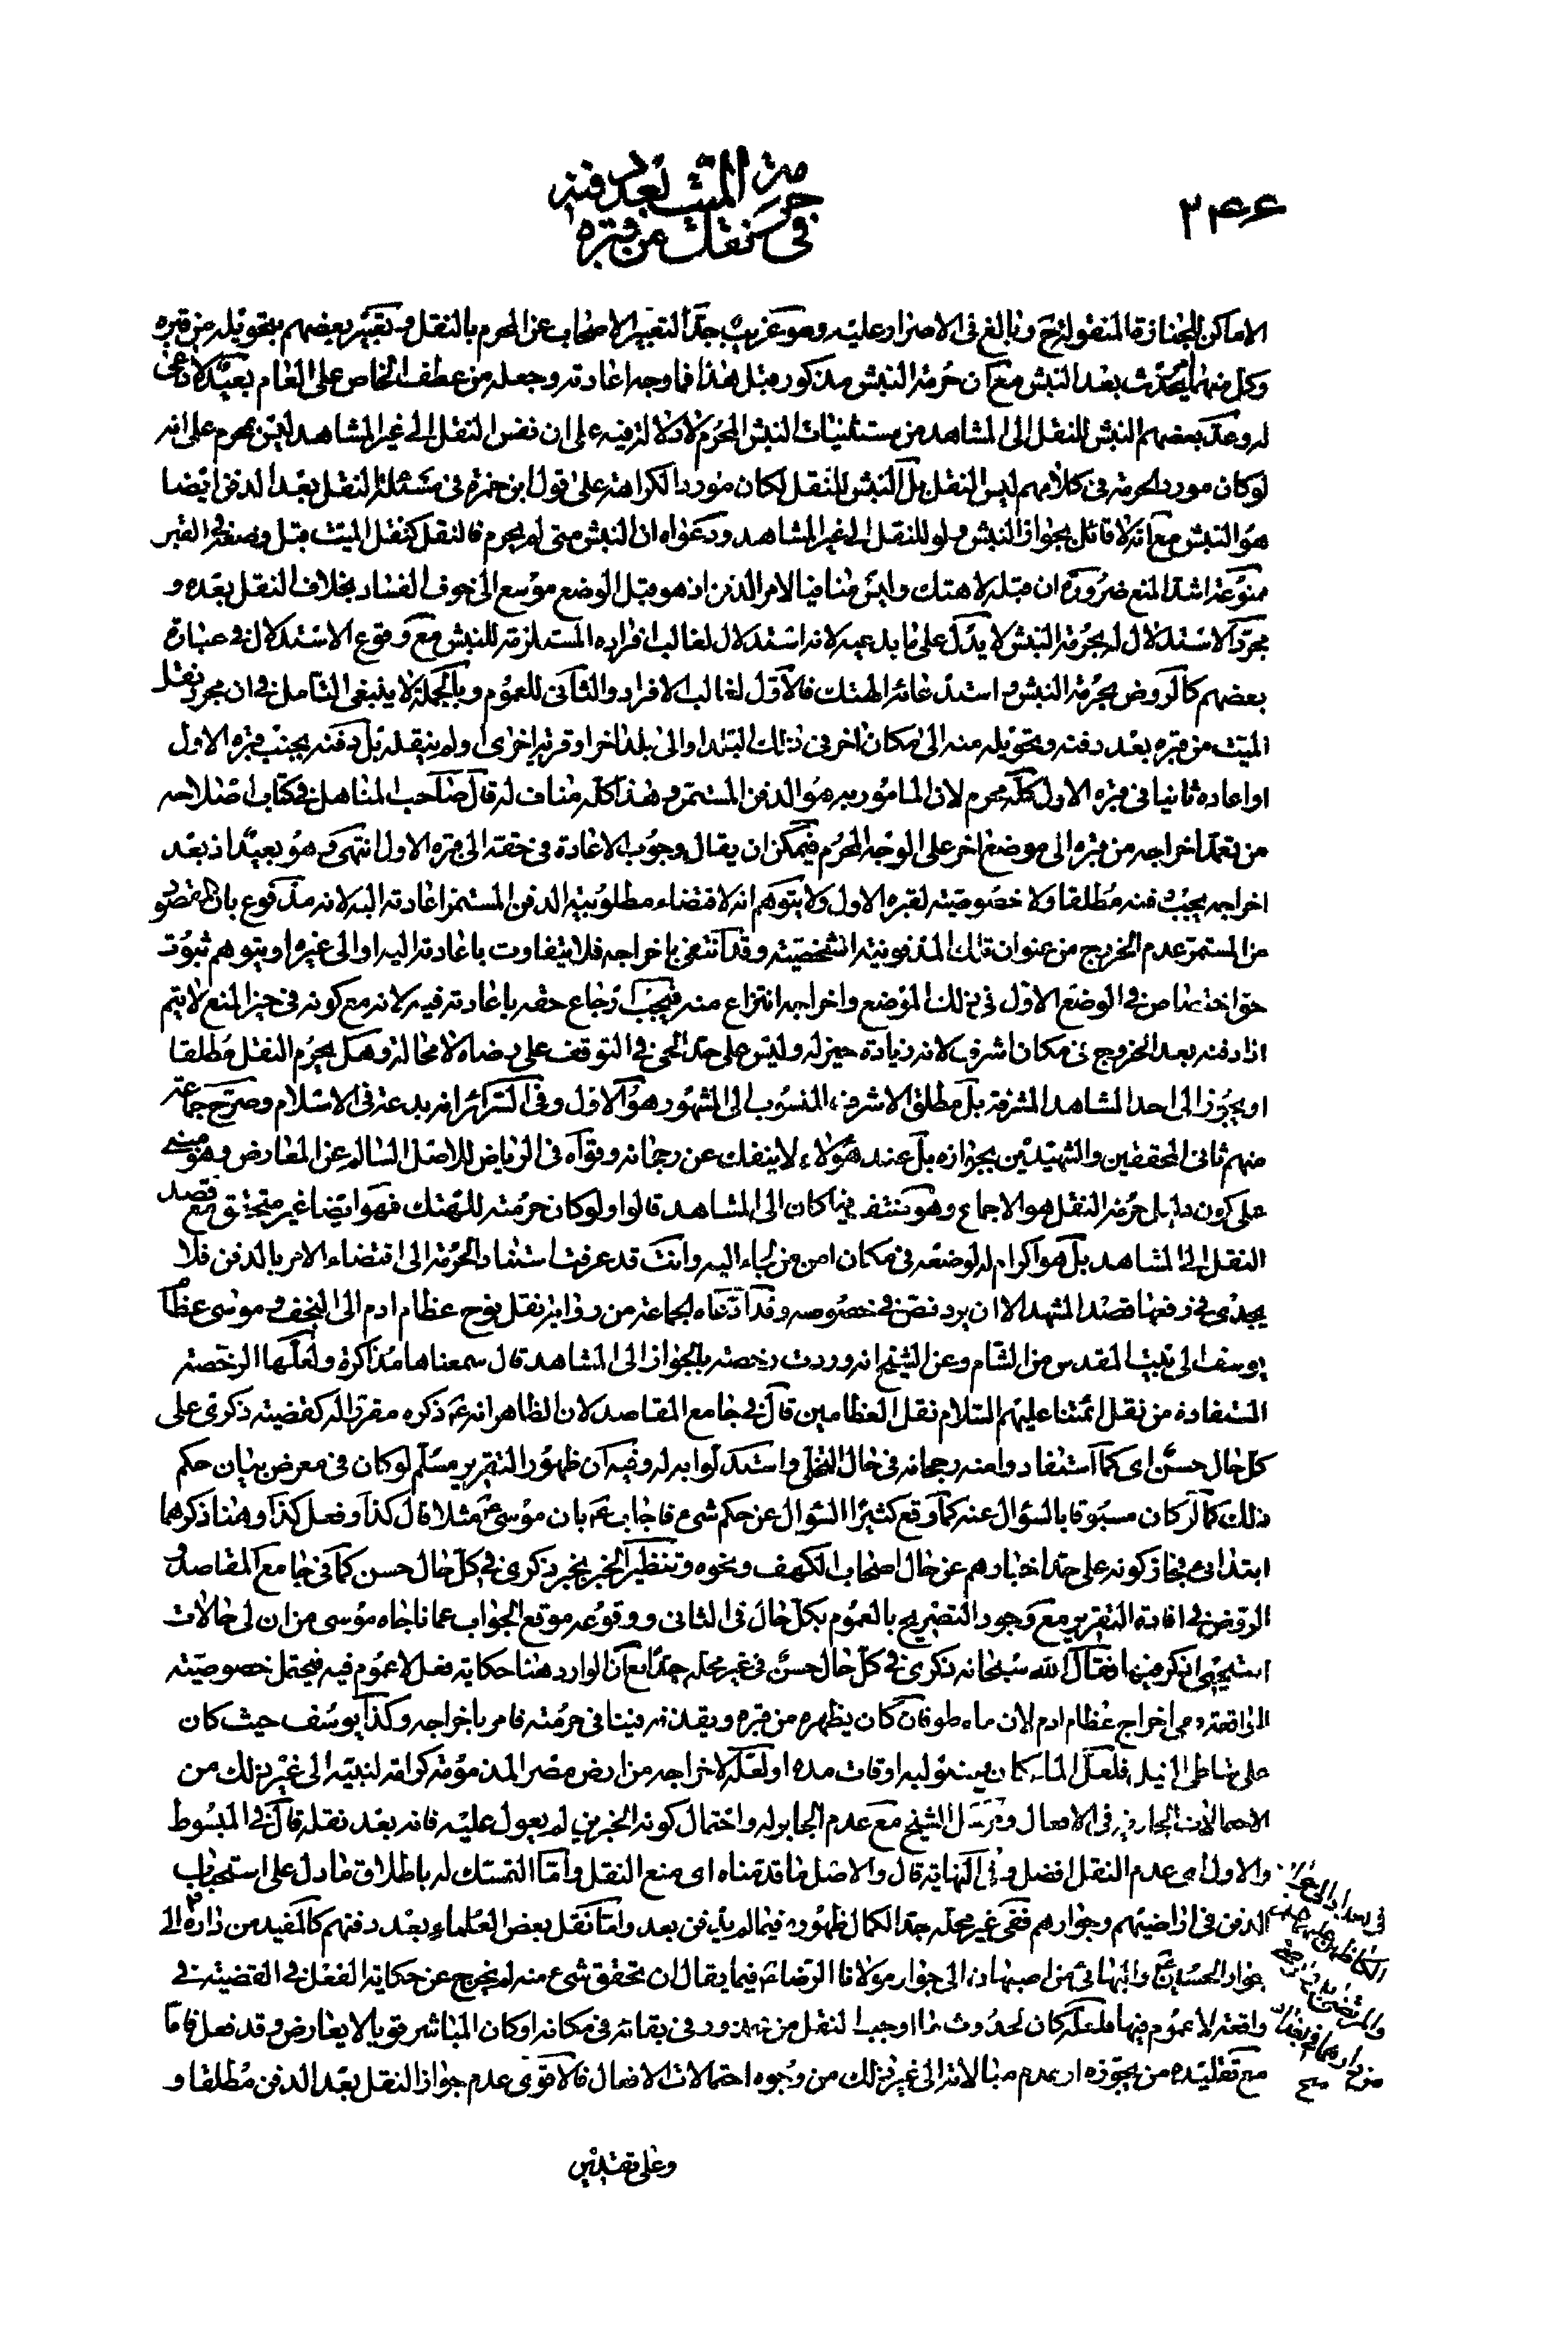 ٢٤٦
في حرمة نقل الميت بعد دفنه عن قبره
الاماكن للجنازة المنقولة وبالغ في الاصرار عليه وهو غريب جدا لتعبير الاصحاب عن المحرم بالنقل وتعبير بعضهم بتحويله من قبره
وكل منهما يحدث بعد النبش مع ان حرمة النبش مذكور قبل هذا فما وجه اعادته وجعله من عطف الخاص على العام بعيد لا داعي
له وعد بعضهم النبش للنقل الى المشاهد من مستثنيات النبش المحرم لا دلالة فيه على ان نفس النقل الى غير المشاهد ليس بمحرم على انه
لو كان مورد الحرمة في كلامهم ليس النقل بل النبش للنقل لكان مورد الكراهة على قول ابن حمزة في مسئلة النقل بعد الدفن ايضا
هو النبش مع انه لا قائل بجواز النبش ولو للنقل الى غير المشاهد ودعواه ان النبش متى لم يحرم فالنقل كنقل الميت قبل وضعه في القبر
ممنوعة اشد المنع ضرورة ان قبله لا هتك وليس منافيا لامر الدفن اذ هو قبل الوضع موسع الى خوف الفساد بخلاف النقل بعده و
مجرد الاستدلال له بحرمة النبش لا يدل على ما يدعيه لانه استدلال لغالب افراده المستلزمة للنبش مع وقوع الاستدلال في عبارة
بعضهم كالروض بحرمة النبش واستدعائه الهتك فالاول لغالب الافراد والثاني للعموم وبالجملة لا ينبغي التامل في ان مجرد نقل
الميت من قبره بعد دفنه وتحويله منه الى مكان اخر في ذلك البلد او الى بلد اخر او قرية اخرى ولم ينقله بل دفنه بجنب قبره الاول
او اعاده ثانيا في قبره الاول كله محرم لان المامور به هو الدفن المستمر وهذا كله مناف له قال صاحب المناهل في كتاب اصلاحه
من تعمد اخراجه من قبره الى موضع اخر على الوجه المحرم فيمكن ان يقال وجوب الاعادة في حقه الى قبره الاول انتهى وهو بعيد اذ بعد
اخراجه يجب دفنه مطلقا ولا خصوصية لقبره الاول ولا يتوهم انه لاقتضاء مطلوبية الدفن المستمر اعادته اليه لانه مدفوع بان المقصو
من المستمر عدم الخروج من عنوان تلك المدفونية الشخصية وقد انتفى باخراجه فلا يتفاوت باعادته اليه او الى غيره او يتوهم ثبوت
حق اختصاص في الوضع الاول في ذلك الموضع واخراجه انتزاع منه فيجب ارجاع حقه باعادته فيه لانه مع كونه في حيز المنع لا يتم
اذا دفنه بعد الخروج في مكان اشرف لانه زيادة خير له وليس على حد الحي في التوقف على رضاه لا محالة وهل يحرم النقل مطلقا
او يجوز الى احد المشاهد المشرفة بل مطلق الاشرف المنسوب الى المشهور هو الاول وفي السرائر انه بدعة في الاسلام وصرح جماعة
منهم ثاني المحققين والشهيدين بجوازه بل عند هؤلاء لا ينفك عن رجحانه وقواه في الرياض للاصل السالم عن المعارض وهو مبني
على كون دليل حرمة النقل هو الاجماع وهو منتف فيما كان الى المشاهد قالوا ولو كان حرمته للهتك فهو ايضا غير متحقق مع قصد
النقل الى المشاهد بل هو اكرام له لوضعه في مكان امن من لجاء اليه وانت قد عرفت استناد الحرمة الى اقتضاء الامر بالدفن فلا
يجدي في رفعها قصد المشهد الا ان يرد نص في خصوصه وقد ادعاه الجماعة من رواية نقل نوح عظام ادم الى النجف وموسى عظام
يوسف الى بيت المقدس من الشام وعن الشيخ انه وردت رخصته بالجواز الى المشاهد قال سمعناها مذاكرة ولعلها الرخصة
المستفادة من نقل ائمتنا عليهم السلام نقل العظامين قال في جامع المقاصد لان الظاهر انه ع ذكره مقررا له كقضية ذكرى على
كل حال حسن اى كما استفادوا منه رجحانه في حال التخلي واستدلوا به له وفيه ان ظهور التقرير مسلم لو كان في معرض بيان حكم
ذلك كما لو كان مسبوقا بالسؤال عنه كما وقع كثيرا السؤال عن حكم شيء فاجاب ع بان موسى ع مثلا قال كذا وفعل كذا وهنا ذكرهما
ابتدائي فجاز كونه على حد اخبارهم عن حال اصحاب الكهف ونحوه وتنظير الخبر بخبر ذكرى في كل حال حسن كما في جامع المقاصد و
الروض في افادة التقرير مع وجود التصريح بالعموم بكل حال في الثاني ووقوعه موقع الجواب عما ناجاه موسى من ان لي حالات
استحيي ان اذكر فيها فقال الله سبحانه ذكرى في كل حال حسن في غير محله جدا مع ان الوارد هنا حكاية فعل لا عموم فيه فيحتمل خصوصيته
الواقعة وهي اخراج عظام ادم لان ماء طوفان كان يظهره من قبره ويقذفه فينافي حرمته فامر باخراجه وكذا يوسف حيث كان
على شاطئ النيل فلعل الماء كان يستولي اوقات مده او لعله لاخراجه من ارض مصر المذمومة كرامة لنبيه الى غير ذلك من
الاحتمالات الجارية في الافعال ومرسل الشيخ مع عدم الجابر له واحتمال كونه الخبرين لم يعول عليه فانه بعد نقله قال في المبسوط
والاول اى عدم النقل افضل وفي النهاية قال والاصل ما قدمناه اى منع النقل واما التمسك له باطلاق ما دل على استحباب
الدفن في اراضيهم وجوارهم ففي غير محله جدا لكمال ظهوره فيما لم يدفن بعد واما نقل بعض العلماء بعد دفنهم كالمفيد من داره الى
جوار الحسين والبهائي من اصبهان الى جوار مولانا الرضا ع فيما يقال ان تحقق شيء منه لم يخرج عن حكاية الفعل في القضية في
واقعة لا عموم فيها فلعله كان لحدوث ما اوجب النقل من في بقائه في مكانه او كان المباشر قويا لا يعارض وقد فعل فاما
مع تقليده من يجوزه او عدم مبالاته الى غير ذلك من وجوه احتمالات الافعال فالاقوى عدم جواز النقل بعد الدفن مطلقا و
وعلى تقديرين